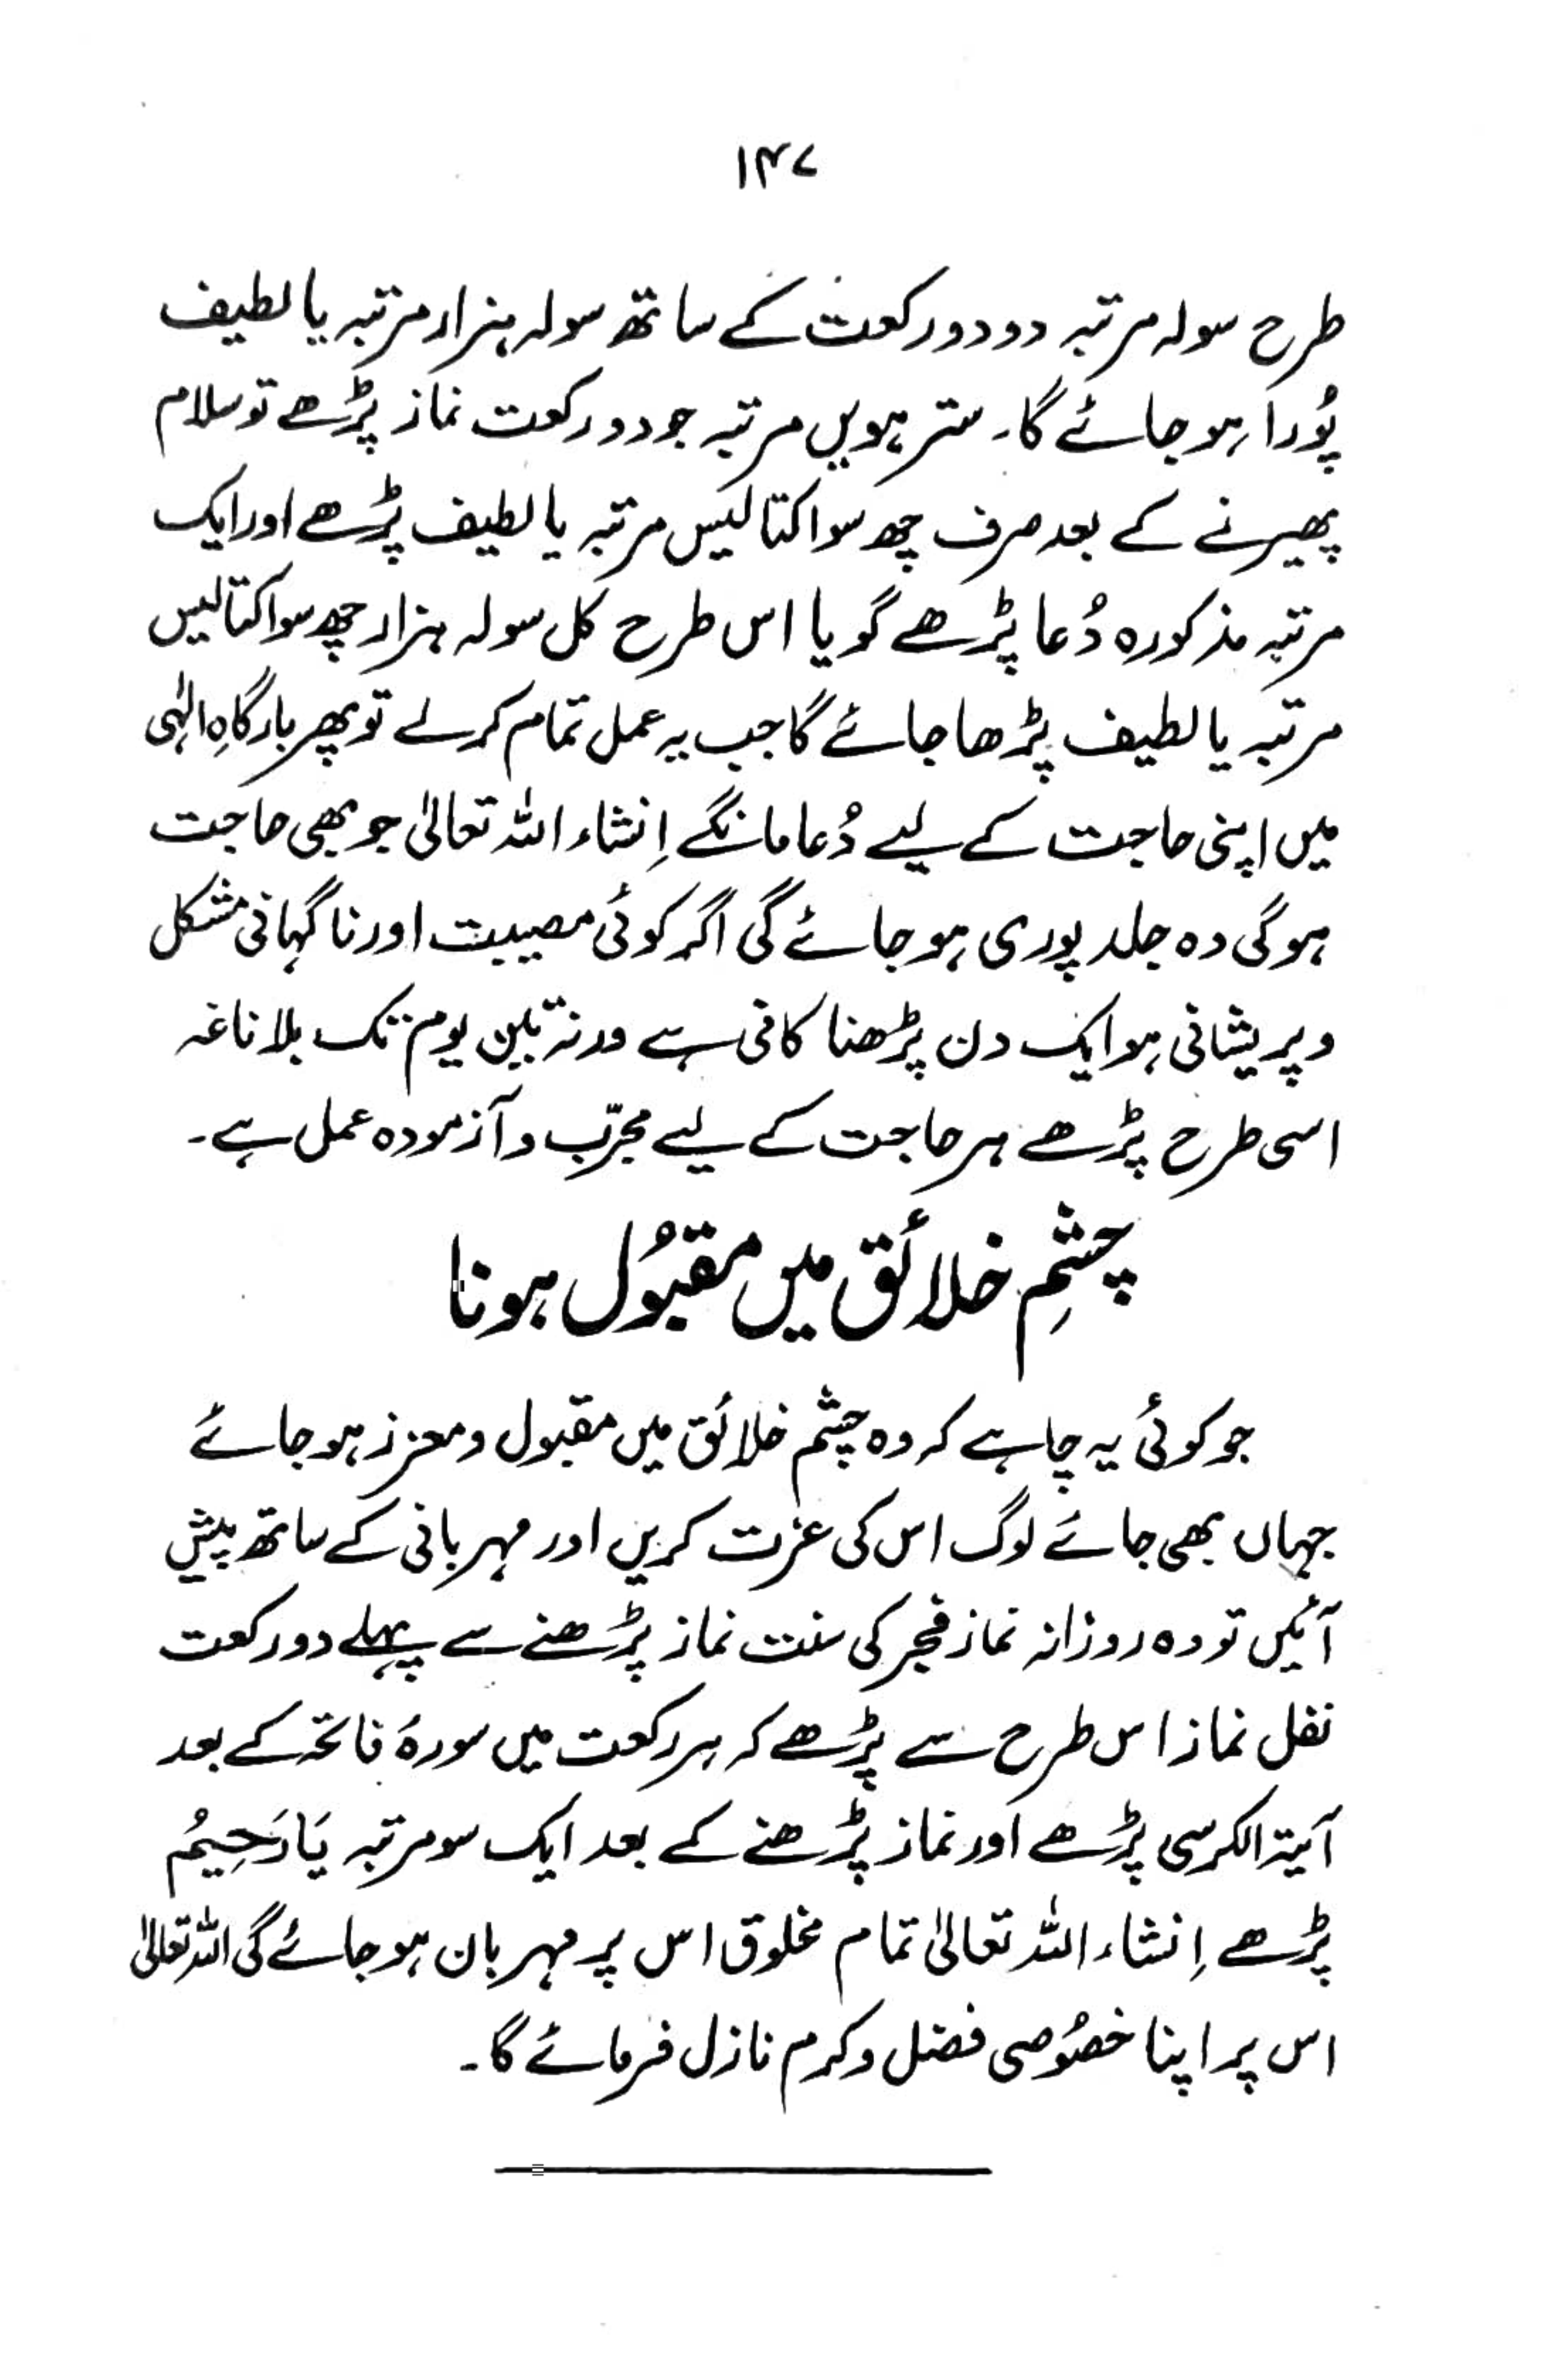 ۱۴۷
طرح سولہ مرتبہ دو دو رکعت کے ساتھ سولہ ہزار مرتبہ یا لطیف
پُورا ہو جائے گا۔ ستر ہویں مرتبہ جو دو رکعت نماز پڑھے تو سلام
پھیرنے کے بعد صرف چھ سو اکتالیس مرتبہ یا لطیف پڑھے اور ایک
مرتبہ مذکورہ دُعا پڑھے گویا اس طرح کل سولہ ہزار چھ سو اکتالیس
مرتبہ یا لطیف پڑھا جائے گا جب یہ عمل تمام کرلے تو پھر بارگاہِ الٰہی
میں اپنی حاجت کے لیے دُعا مانگے اِنشاء اللہ تعالیٰ جو بھی حاجت
ہوگی وہ جلد پوری ہو جائے گی اگر کوئی مصیبت اور ناگہانی مشکل
و پریشانی ہو ایک دن پڑھنا کافی ہے ورنہ تین یوم تک بلا ناغہ
اسی طرح پڑھے ہر حاجت کے لیے مجرّب و آزمودہ عمل ہے۔
چشمِ خلائق میں مقبُول ہونا
جو کوئی یہ چاہے کہ وہ چشم خلائق میں مقبول و معزز ہو جائے
جہاں بھی جائے لوگ اس کی عزت کریں اور مہربانی کے ساتھ پیش
آئیں تو وہ روزانہ نماز فجر کی سنت نماز پڑھنے سے پہلے دو رکعت
نفل نماز اس طرح سے پڑھے کہ ہر رکعت میں سورۂ فاتحہ کے بعد
آیۃ الکرسی پڑھے اور نماز پڑھنے کے بعد ایک سو مرتبہ یَا رَحِیْمُ
پڑھے اِنشاء اللہ تعالیٰ تمام مخلوق اس پر مہربان ہو جائے گی اللہ تعالیٰ
اس پر اپنا خصُوصی فضل و کرم نازل فرمائے گا۔